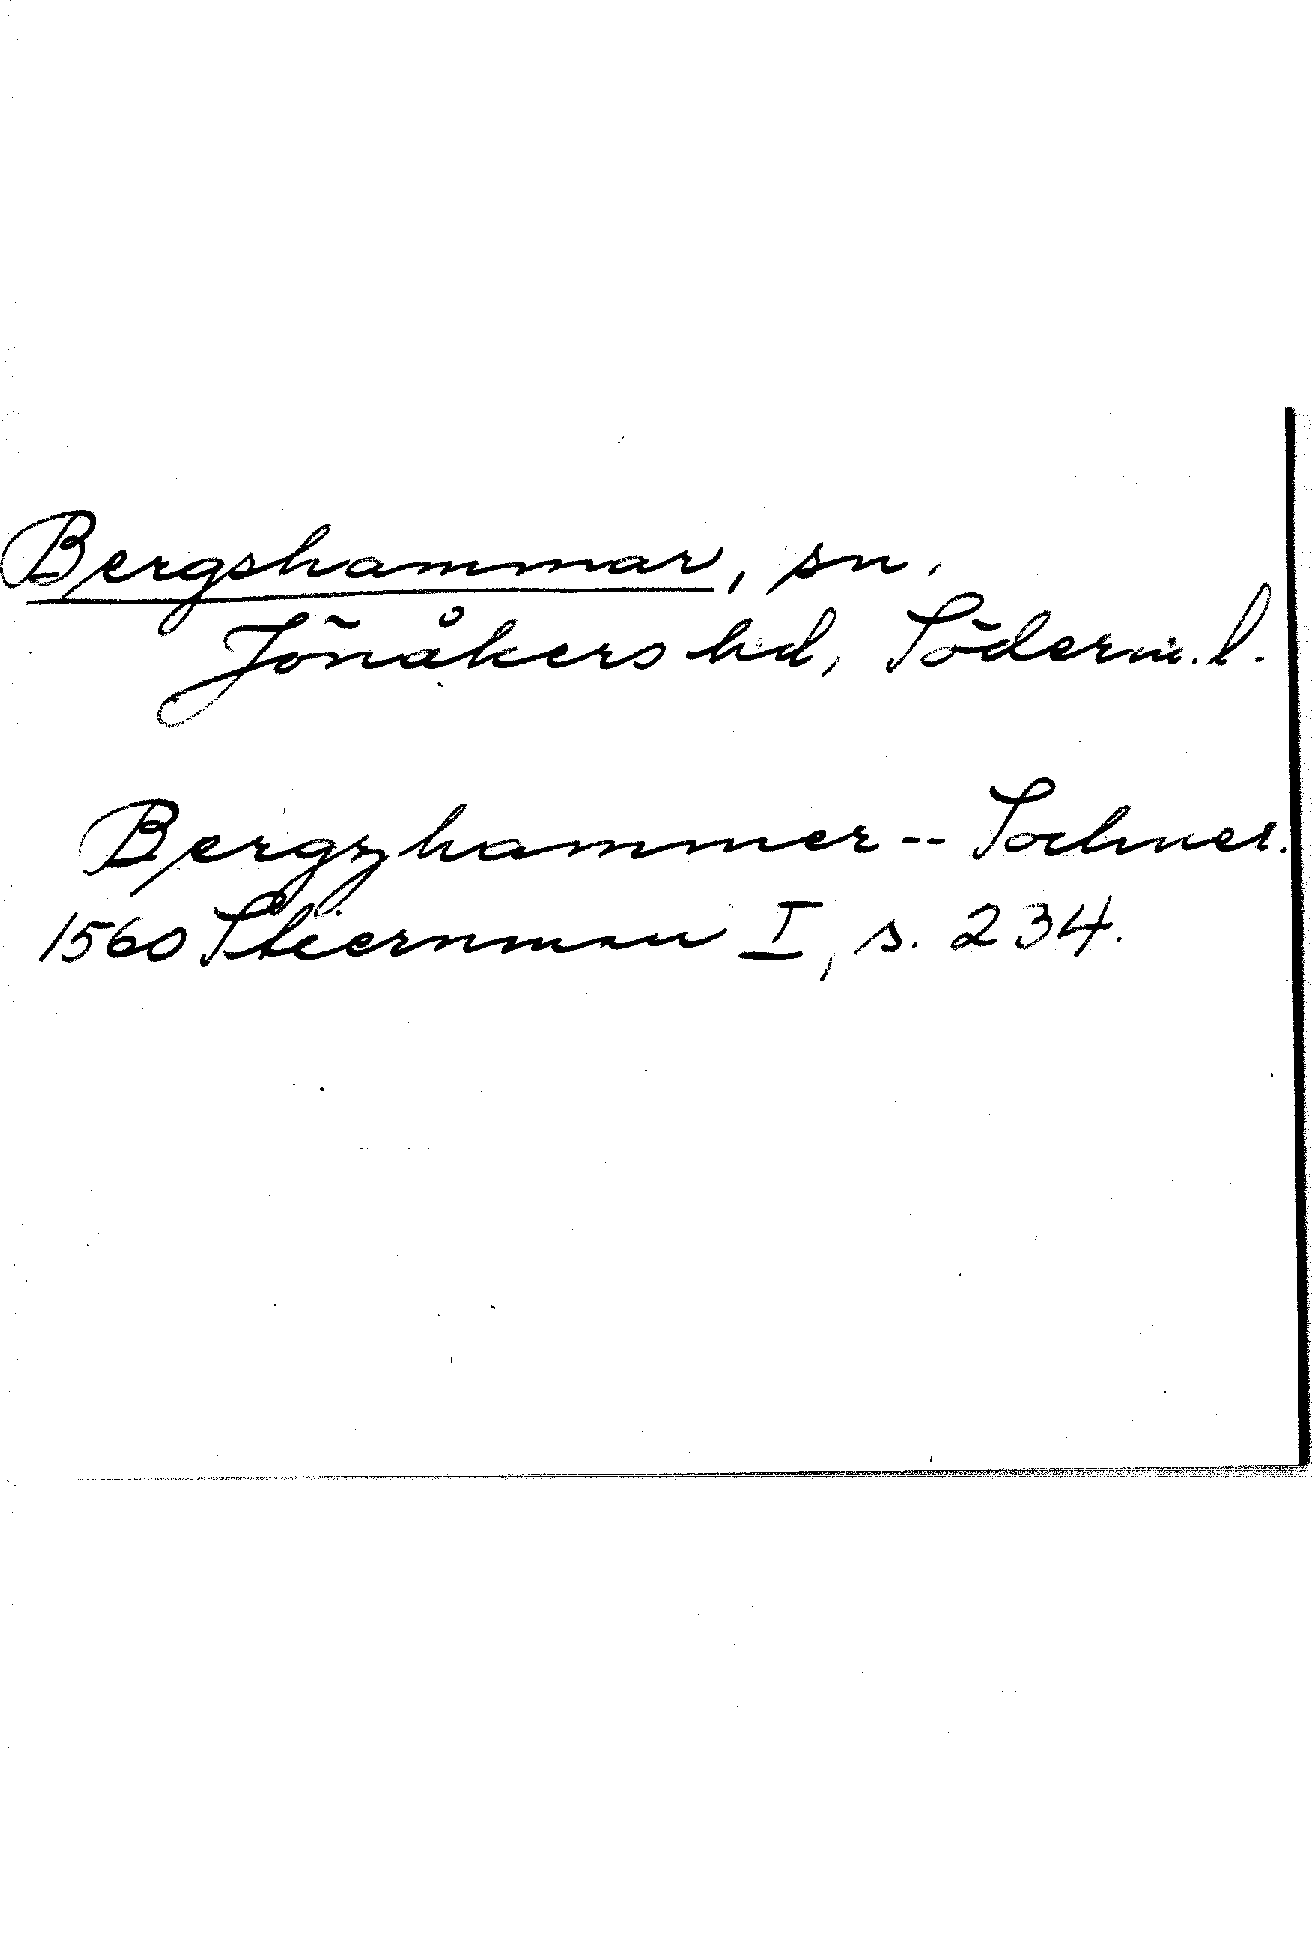 Bergshammar, sn.
Jönåkers hd, Söderm. l.
Bergzhammer -- Sochner.
1560 Stiernman I, s. 234.